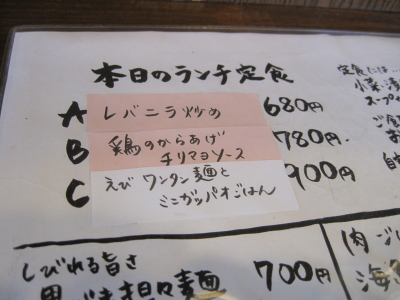 本日のランチ定食
A レバニラ炒め 680円
B 鶏のからあげ 780円
チリマヨソース
C えびワンタン麺と 900円
ミニガッパオごはん
定食には…
小菜・漬
スープ
ご飯
お
自
しびれる旨さ
担々麺 700円
肉
海